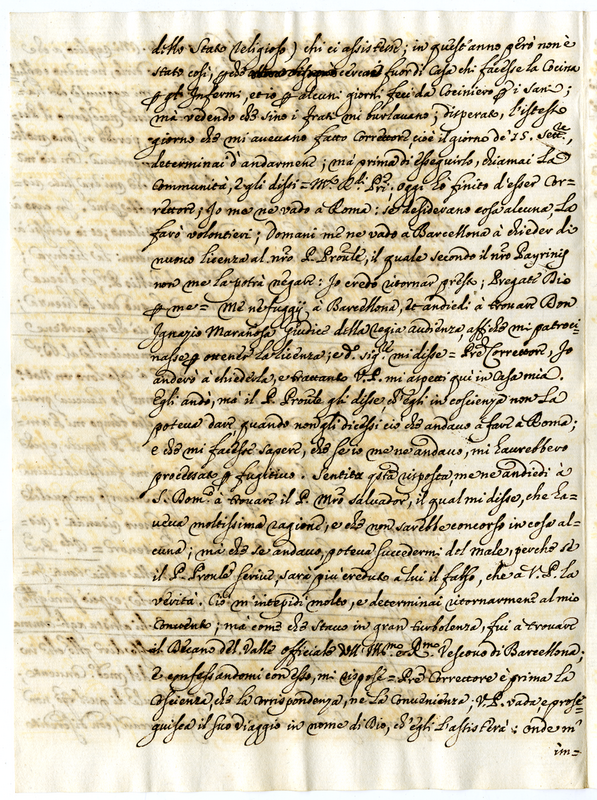 dello Stato religioso) chi ci assistesse; in quest'anno però non è
stato così, perchè cercare fuor di Casa chi facesse la Cocina
p gl' Infermi, et io p alcuni giorni feci da Cociniero p i sani;
mà vedendo che sino i frati mi burlavano; disperato, l'istesso
giorno che mi avevano fatto Correttore, cioè il giorno de' 15. Sett.re,
determinai d'andarmene; mà prima di esseguirlo, chiamai La
Communità, e gli dissi = M.to R.di Pri, oggi hò finito d'esser Cor=
rettore; Io me ne vado à Roma: se desiderano cosa alcuna, La
farò volontieri; Domani me ne vado à Barcellona à chieder di
nuovo licenza al nro P. Proule, il quale secondo il nro Payrinis
non me la potrà negare: Io credo ritornar presto; Pregate Dio
p me = Me ne fuggij à Barcellona, et andiedi à trovare Don
Ignazio Marañosa Giudice della regia audienza, affiche mi patroci=
nasse p ottener la licenza; e d.o sig.re mi disse = Pre Correttore, Io
anderò à chiederla, e trattanto V.P. mi aspetti quì in Casa mia.
Egli andò, mà il P. Proule gli disse ch'egli in coscienza non La
poteva dare, quando non gli dicessi ciò che andavo à fare à Roma;
e che mi facesse sapere, che se io me ne andavo, mi haurebbero
processato p fugitivo. Sentita questa risposta me ne andiedi à
S. Dom.co à trovare il P. Mro Salvador, il qual mi disse, che ha=
veva moltissima ragione, e che non sarebbe concorso in cosa al=
cuna; mà che se andavo, poteva succedermi del male, perche se
il P. Proule scrive, sarà più creduto à lui il falso, che à V.P. la
verità. Ciò m'intepidì molto, e determinai ritornarmene al mio
Convento; mà come che stavo in gran turbolenza, fui à trovare
il Decano del Valle officiale dell' Ill.mo e R.mo Vescovo di Barcellona;
e confessandomi con esso, mi rispose = Pre Correttore è prima La
Coscienza, che la Corrispondenza, ne La Convenienza; V.P. vada, e prose=
guisca il suo viaggio in nome di Dio, ch'egli L'assisterà: onde m'
im=